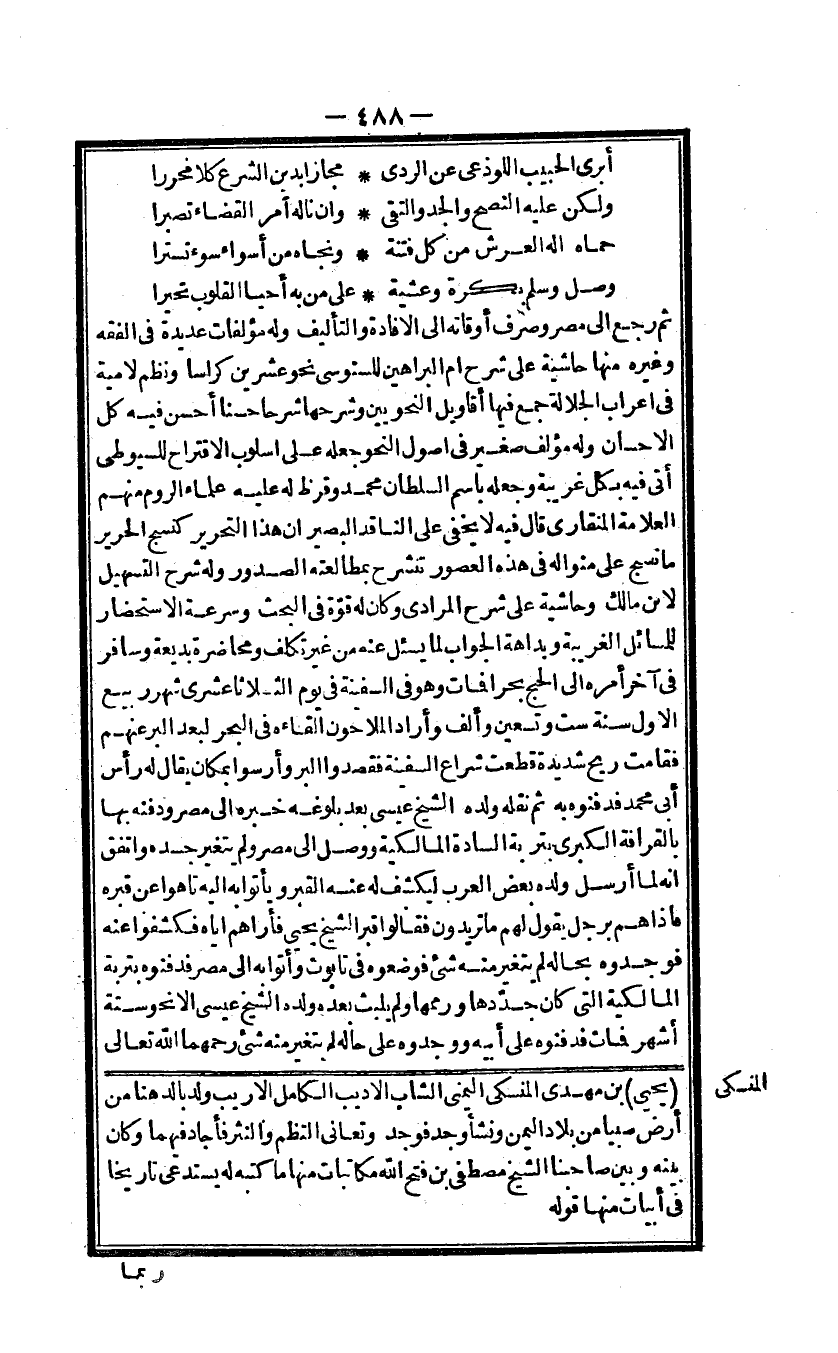 — ٤٨٨ —
أبرى الحبيب اللوذعى عن الردى * مجازا بدين الشرع كلا محررا
ولكن عليه النصح والجد والتقى * وان ناله أمر القضاء تصبرا
حماه اله العرش من كل فتنة * ونجاه من أسواء سوء تسترا
وصل وسلم بكرة وعشية * على من به أحيا القلوب تحيرا
ثم رجع الى مصر وصرف أوقاته الى الافادة والتأليف وله مؤلفات عديدة فى الفقه
وغيره منها حاشية على شرح ام البراهين للسنوسى نحو عشرين كراسا ونظم لامية
فى اعراب الجلالة جمع فيها أقاويل النحويين وشرحها شرحا حسنا أحسن فيه كل
الاحسان وله مؤلف صغير فى اصول النحو جعله على اسلوب الاقتراح للسيوطى
أتى فيه بكل غريبة وجعله باسم السلطان محمد وقرظ له عليه علماء الروم منهم
العلامة المنقارى قال فيه لا يخفى على الناقد البصير ان هذا التحرير كنسج الحرير
ما نسج على منواله فى هذه العصور تنشرح بمطالعته الصدور وله شرح التسهيل
لابن مالك وحاشية على شرح المرادى وكان له قوّة فى البحث وسرعة الاستحضار
للمسائل الغريبة وبداهة الجواب لما يسئل عنه من غير تكلف ومحاضرة بديعة وسافر
فى آخر أمره الى الحج بحرا فمات وهو فى السفينة فى يوم الثلاثاء عشرى شهر ربيع
الاول سنة ست وتسعين وألف وأراد الملاحون القاءه فى البحر لبعد البر عنهم
فقامت ريح شديدة قطعت شراع السفينة فقصدوا البر وأرسوا بمكان يقال له رأس
أبى محمد فدفنوه به ثم نقله ولده الشيخ عيسى بعد بلوغه خبره الى مصر ودفنه بها
بالقرافة الكبرى بتربة السادة المالكية ووصل الى مصر ولم يتغير جسده واتفق
انه لما أرسل ولده بعض العرب ليكشف له عنه القبر ويأتوا به اليه تاهوا عن قبره
فاذا هم برجل يقول لهم ما تريدون فقالوا قبر الشيخ يحيى فأراهم اياه فكشفوا عنه
فوجدوه بحاله لم يتغير منه شئ فوضعوه فى تابوت وأتوا به الى مصر فدفنوه بتربة
المالكية التى كان جدّدها ورمها ولم يلبث بعده ولده الشيخ عيسى الا نحو ستة
أشهر فمات فدفنوه على أبيه ووجدوه على حاله لم يتغير منه شئ رحمهما الله تعالى
المنسكى
(يحيى) بن مهدى المنسكى اليمنى الشاب الاديب الكامل الاريب ولد بالدهنا من
أرض صبيا من بلاد اليمن ونشأ وجد فوجد وتعانى النظم والنثر فأجاد فيهما وكان
بينه وبين صاحبنا الشيخ مصطفى بن فتح الله مكاتبات منها ما كتبه له يستدعى تاريخا
فى أبيات منها قوله
ربما